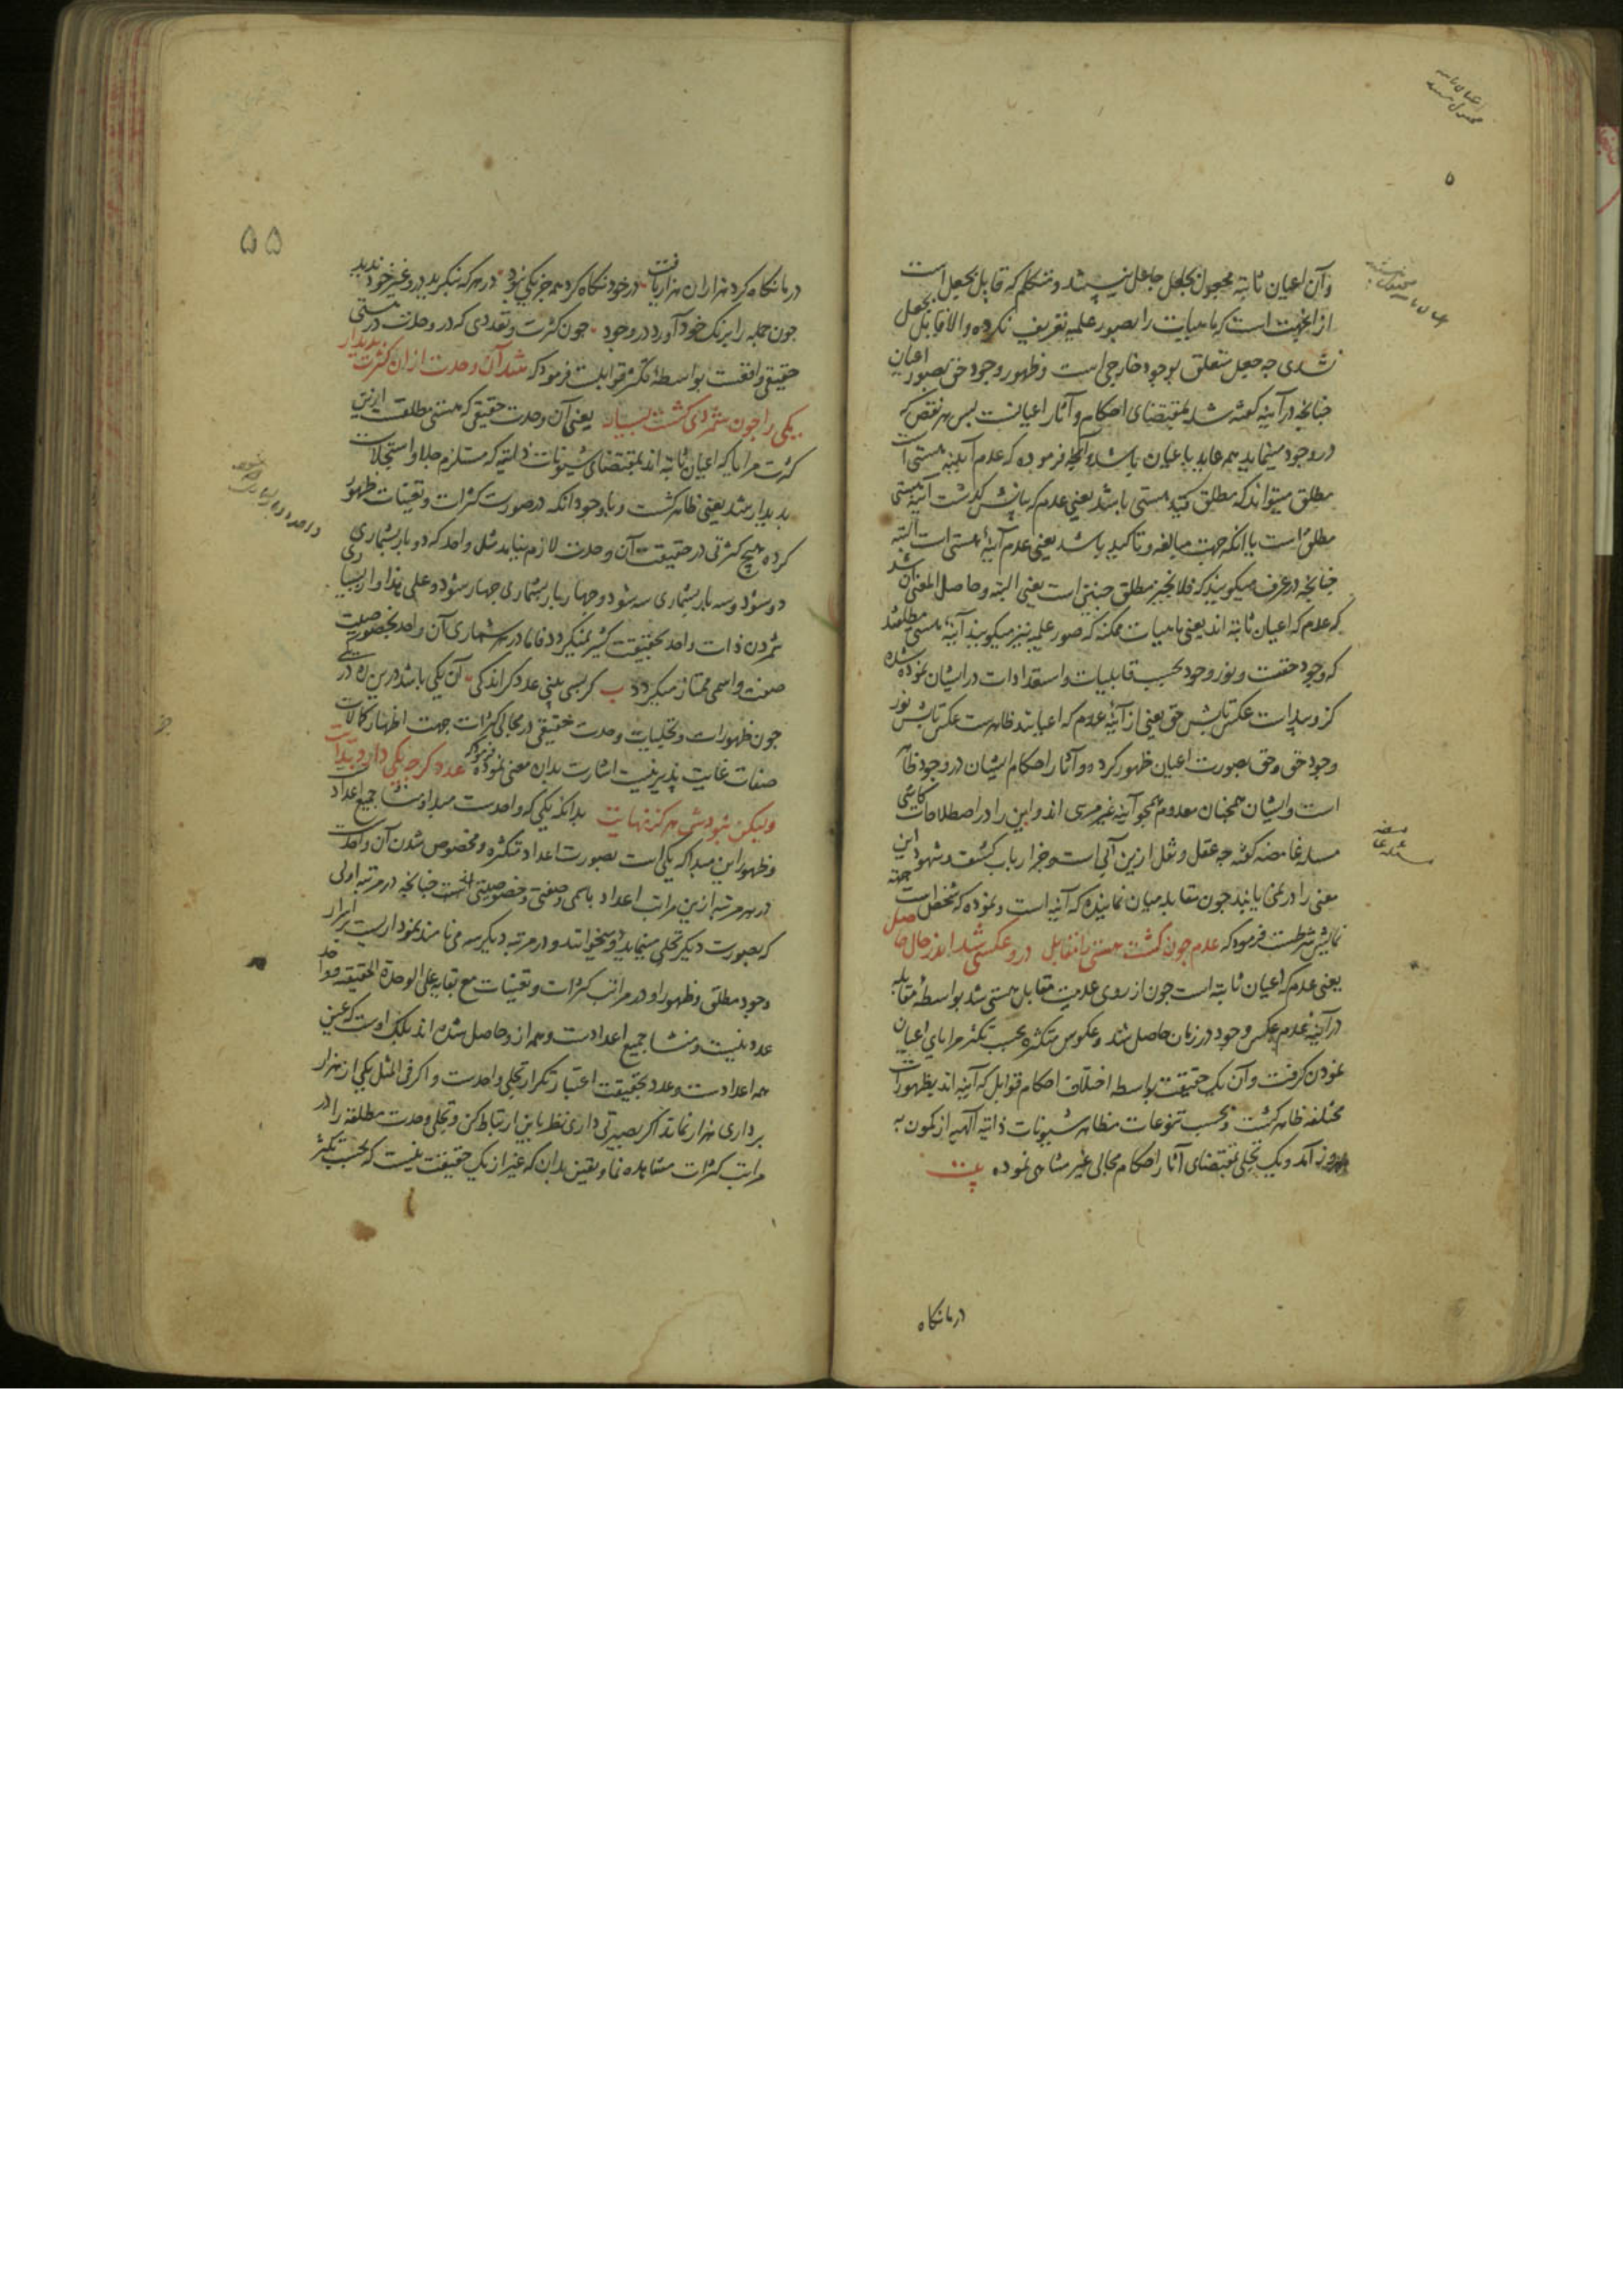 وآن اعیان ثابته مجعول بجعل جاعل نیستند ومتکلم که قایل بجعل است
ازانجهت است که ماهیات را بصور علمیه تعریف نکرده والا قایل بجعل
نشدی چه جعل متعلق بوجود خارجی است وظهور وجود حق بصور اعیان
چنانچه در آینه گفته شد بمقتضای احکام وآثار اعیانست پس هر نقص که
در وجود مینماید هم عاید باعیان باشد وآنچه فرموده که عدم آیینه هستی است
مطلق میتواند که مطلق قید هستی باشد یعنی عدم که بیانش گذشت آینه هستی
مطلق است یا انکه جهت مبالغه وتاکید باشد یعنی عدم آینهٔ هستی است البته
چنانچه در عرف میگویند که فلانچیز مطلق چنین است یعنی البته وحاصل المعنی آن شد
که عدم که اعیان ثابته اند یعنی ماهیات ممکنه که صور علمیه نیز میگویند آینه هستی مطلقند
که وجود حقست ونور وجود بحسب قابلیات واستعدادات در ایشان نموده شده
کزو پیداست عکس تابش حق یعنی از آینهٔ عدم که اعیانند ظاهرست عکس تابش نور
وجود حق وحق بصورت اعیان ظهور کرده وآثار احکام ایشان در وجود ظاهر
است وایشان همچنان معدوم همچو آینه غیر مرئی اند واین را در اصطلاحات کاشی
مسئله غامضه گفته چه عقل ونقل ازین آبی است وجز ارباب کشف وشهود این
معنی را درنمی یابند چون مقابله میان نماینده که آینه است ونموده که شخص است جهت
نمایش شرطست فرموده که عدم چون گشت هستی را مقابل درو عکسی شد اندر حال حاصل
یعنی عدم که اعیان ثابته است چون از روی عدمیت مقابل هستی شد بواسطهٔ مقابله
در آینهٔ عدم عکس وجود در زمان حاصل شد وعکوس متکثره بحسب تکثر مرایای اعیان
نمودن گرفت وآن یک حقیقت بواسطه اختلاف احکام قوابل که آینه اند بظهورات
مختلفه ظاهر گشت وبحسب تنوعات مظاهر شیونات ذاتیه الهیه از کمون به
بروز آمد ویک تجلی بمقتضای آثار احکام مجالی غیر متناهی نموده بیت
درما نگاه
۵۵
درما نگاه کرد هزاران هزار یافت درخود نگاه کرد همه جز یکی نبود در هر که بنگرید درو غیر خود ندید
چون جمله را برنگ خود آورد در وجود چون کثرت وتعددی که در وحدت هستی
حقیقی واقعست بواسطهٔ تکثر قوابلست فرمود که شد آن وحدت ازان کثرت پدیدار
یکی را چون شمردی گشت بسیار یعنی آن وحدت حقیقی که هستی مطلقست ازین
کثرت مرایا که اعیان ثابته اند بمقتضای شیونات ذاتیه که مستلزم جلا واستجلاست
پدیدار شد یعنی ظاهر گشت وباوجود انکه در صورت کثرات وتعینات ظهور
کرده هیچ کثرتی در حقیقت آن وحدت لازم نیاید مثل واحد که دو بار بشماری
دو شود وسه بار بشماری سه شود وچهار بار بشماری چهار شود وعلی هذا واز بسیاری
شمردن ذات واحد بحقیقت کثیر نمیگردد فاما در هر شماری آن واحد بخصوصیت
صفت واسمی ممتاز میگردد ب گر بسی بینی عدد گر اندکی آن یکی باشد درین ره در یکی
چون ظهورات وتجلیات وحدت حقیقی در مجالی کثرات جهت اظهار کمالات
صفات غایت پذیر نیست اشارت بدان معنی نموده فرمود که عدد گرچه یکی دارد بدایت
ولیکن نبودش هرگز نهایت بدانکه یکی که واحدست مبدا ومنشاء جمیع اعداد
وظهور این مبدا که یکی است بصورت اعداد متکثره ومخصوص شدن آن واحد
در هر مرتبه ازین مراتب اعداد باسمی وصفتی وخصوصیتی است چنانچه در مرتبه اولی
که بصورت دیگر تجلی مینماید دو میخوانند ودر مرتبه دیگر سه می نامند نمودار بست بر اسرار
وجود مطلق وظهور او در مراتب کثرات وتعینات مع بقایه علی الوحدة الحقیقیه وواحد
عدد نیست ومنشاء جمیع اعدادست وهمه ازو حاصل شده اند بلکه اوست که عین
همه اعدادست وعدد بحقیقت اعتبار تکرار تجلی واحدست واگر فی المثل یکی از هزار
برداری هزار نماند اگر بصیرتی داری نظر باین ارتباط کن وتجلی وحدت مطلقه را در
مراتب کثرات مشاهده نما ویقین بدان که غیر از یک حقیقت نیست که بحسب تکثر